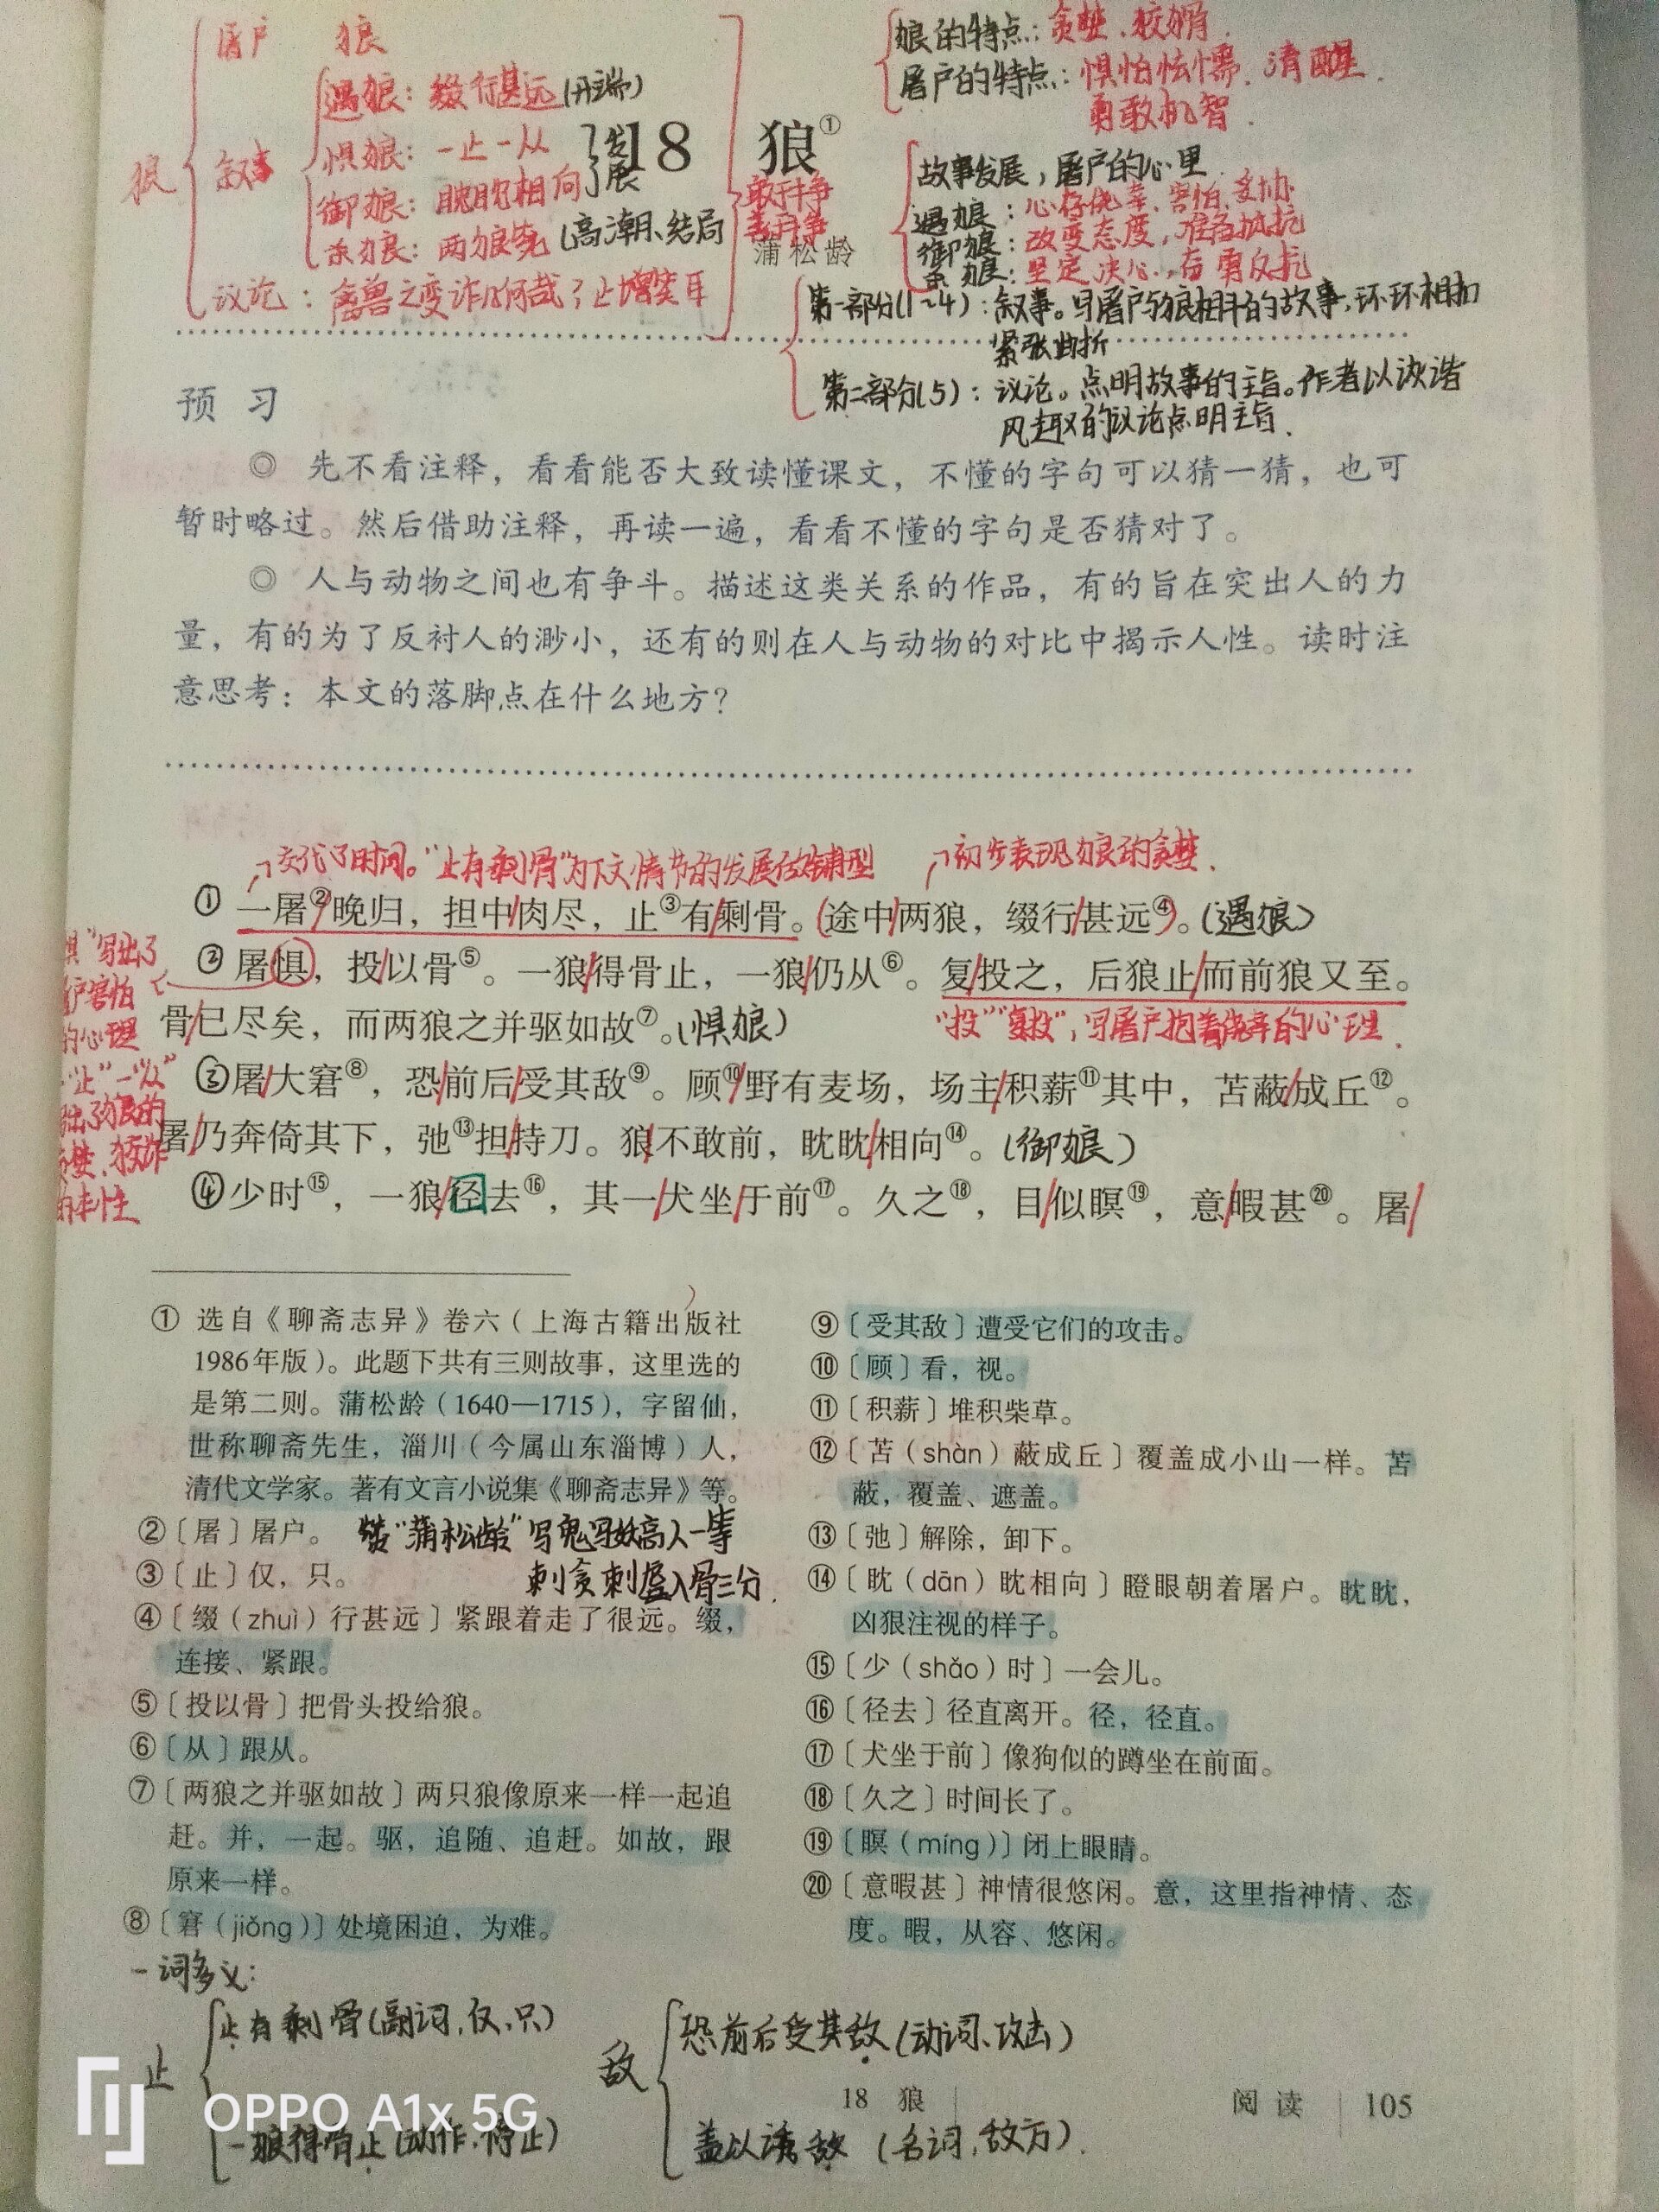 屠户 狼
狼的特点：贪婪、狡猾.
屠户的特点：惧怕怯懦、清醒.
勇敢机智.
狼
叙事
遇狼：缀行甚远(开端)
惧狼：一止一从
发展
御狼：眈眈相向
杀狼：两狼毙(高潮、结局
议论：禽兽之变诈几何哉？止增笑耳
18 狼①
敢于斗争
善于斗争
蒲松龄
故事发展，屠户的心里
遇狼：心存侥幸、害怕、妥协
御狼：改变态度，准备抵抗
杀狼：坚定决心，奋勇反抗
第一部分(1~4)：叙事。写屠户与狼相斗的故事，环环相扣
紧张曲折
第二部分(5)：议论。点明故事的主旨。作者以诙谐
风趣的议论点明主旨.
预 习
◎ 先不看注释，看看能否大致读懂课文，不懂的字句可以猜一猜，也可
暂时略过。然后借助注释，再读一遍，看看不懂的字句是否猜对了。
◎ 人与动物之间也有争斗。描述这类关系的作品，有的旨在突出人的力
量，有的为了反衬人的渺小，还有的则在人与动物的对比中揭示人性。读时注
意思考：本文的落脚点在什么地方？
交代了时间。“止有剩骨”为下文情节的发展做铺型
初步表现狼的贪婪.
①一屠②/晚归，担中/肉尽，止③有/剩骨。(途中/两狼，缀行/甚远④)。(遇狼)
②屠惧，投/以骨⑤。一狼/得骨止，一狼/仍从⑥。复/投之，后狼止/而前狼又至。
骨/已尽矣，而两狼之并驱如故⑦。(惧狼)
“投”“复投”，写屠户抱着侥幸的心理.
惧”写出了
户害怕
的心理
“止”一“从”
出了狼的
婪、狡诈
的本性
③屠/大窘⑧，恐/前后/受其敌⑨。顾⑩/野有麦场，场主/积薪⑪其中，苫蔽/成丘⑫。
屠/乃奔倚其下，弛⑬担/持刀。狼/不敢前，眈眈/相向⑭。(御狼)
④少时⑮，一狼/径去⑯，其一/犬坐/于前⑰。久之⑱，目/似瞑⑲，意/暇甚⑳。屠/
① 选自《聊斋志异》卷六（上海古籍出版社
1986年版）。此题下共有三则故事，这里选的
是第二则。蒲松龄（1640—1715），字留仙，
世称聊斋先生，淄川（今属山东淄博）人，
清代文学家。著有文言小说集《聊斋志异》等。
②〔屠〕屠户。
赞“蒲松龄”写鬼写妖高人一等
刺贪刺虐入骨三分.
③〔止〕仅，只。
④〔缀（zhuì）行甚远〕紧跟着走了很远。缀，
连接、紧跟。
⑤〔投以骨〕把骨头投给狼。
⑥〔从〕跟从。
⑦〔两狼之并驱如故〕两只狼像原来一样一起追
赶。并，一起。驱，追随、追赶。如故，跟
原来一样。
⑧〔窘（jiǒng）〕处境困迫，为难。
⑨〔受其敌〕遭受它们的攻击。
⑩〔顾〕看，视。
⑪〔积薪〕堆积柴草。
⑫〔苫（shàn）蔽成丘〕覆盖成小山一样。苫
蔽，覆盖、遮盖。
⑬〔弛〕解除，卸下。
⑭〔眈（dān）眈相向〕瞪眼朝着屠户。眈眈，
凶狠注视的样子。
⑮〔少（shǎo）时〕一会儿。
⑯〔径去〕径直离开。径，径直。
⑰〔犬坐于前〕像狗似的蹲坐在前面。
⑱〔久之〕时间长了。
⑲〔瞑（míng）〕闭上眼睛。
⑳〔意暇甚〕神情很悠闲。意，这里指神情、态
度。暇，从容、悠闲。
一词多义：
止
止有剩骨(副词、仅、只)
一狼得骨止(动作.停止)
敌
恐前后受其敌(动词、攻击)
盖以诱敌 (名词，敌方).
18 狼
阅 读 105
OPPO A1x 5G